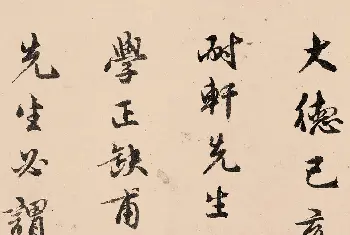 大德己亥
耐軒先生
學正缺甫
先生必謂